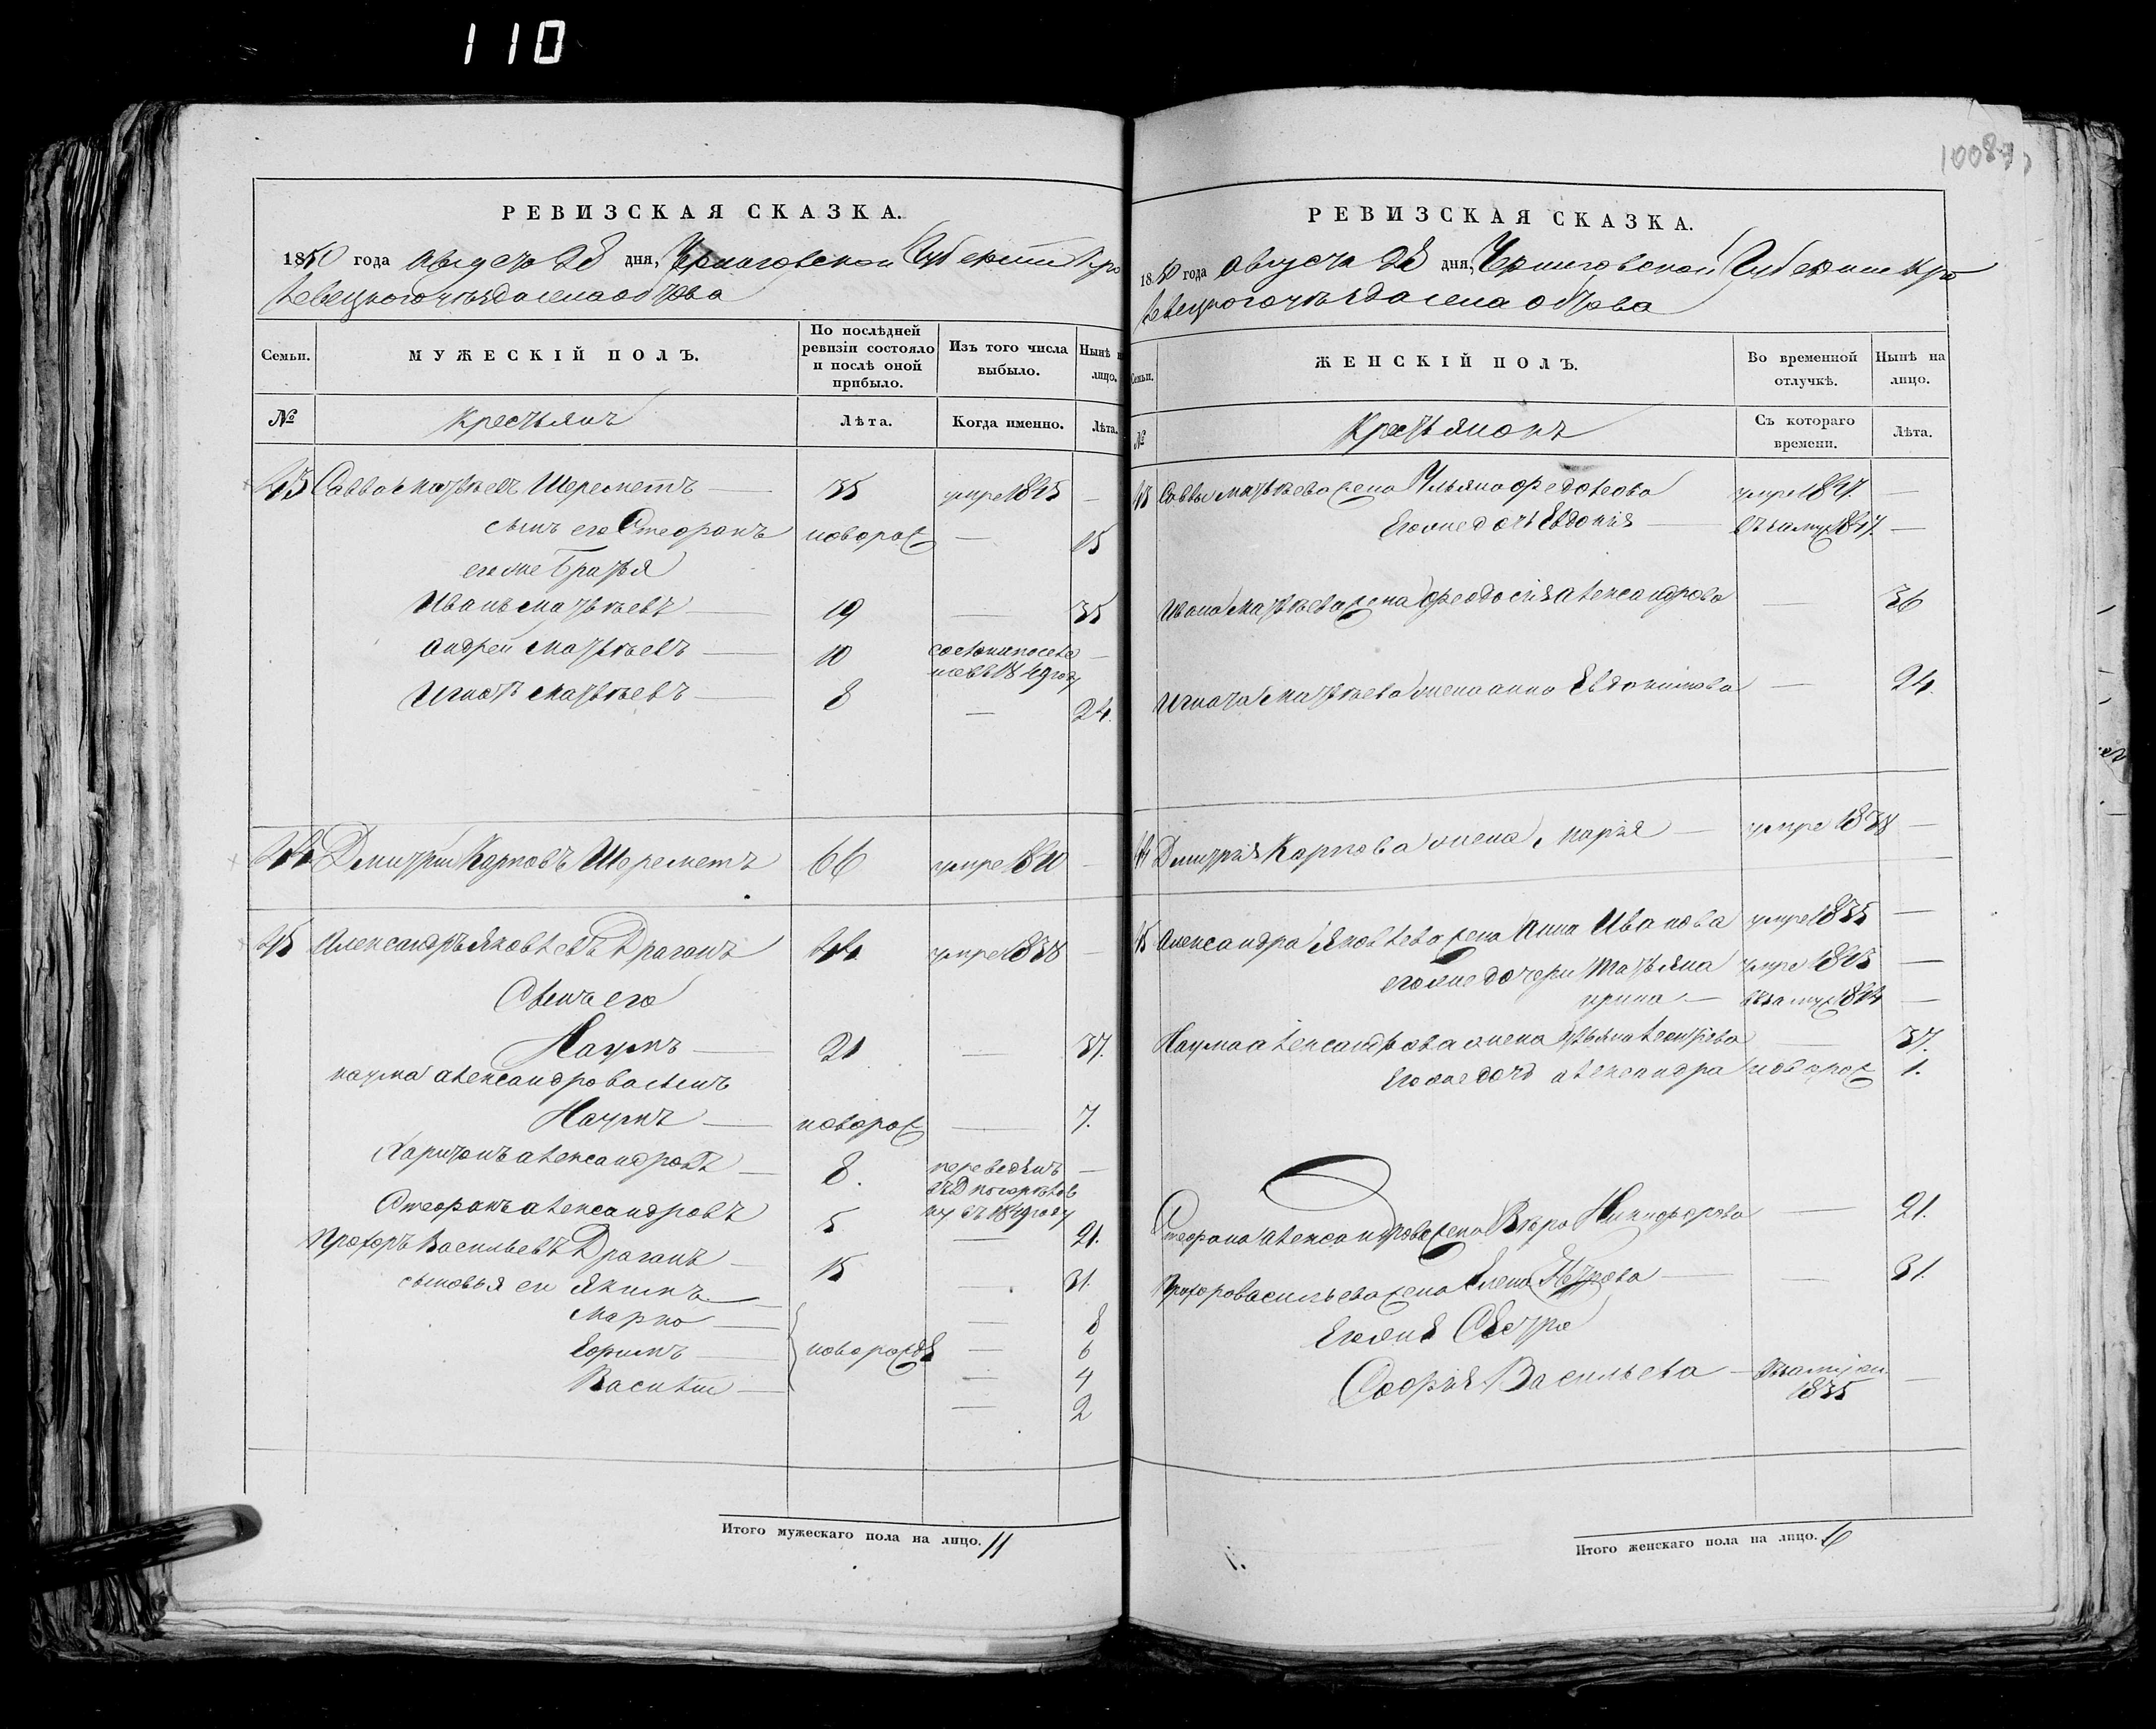 110
РЕВИЗСКАЯ СКАЗКА.
1850 года Августа 28 дня, Черниговской Губернiи Кро
левецкого уѣзда села Обтова
Семьи.
МУЖЕСКІЙ ПОЛЪ.
По послѣдней ревизіи состояло и послѣ оной прибыло.
Изъ того числа выбыло.
Нынѣ н лицо.
№
Крестьянъ
Лѣта.
Когда именно.
Лѣта.
43 Савва Матвѣевъ Шереметъ 35 умре 1845 —
сынъ его Стефанъ новорож — 15
его же Братья
Иванъ Матвѣевъ 19 — 35
Андрей Матвѣевъ 10 1849 году —
Игнатъ Матвѣевъ 8 — 24.
44 Дмитрiй Карповъ Шереметъ 66 умре 1840 —
45 Александръ Яковлевъ Драганъ 44 умре 1838 —
Сынъ его
Наумъ 21 — 37.
Наума Александрова сынъ
Наумъ новорож — 7.
Харитонъ Александровъ 8. переведенъ —
1849 году
Стефанъ Александровъ 5 — 21.
Прохоръ Васильевъ Драганъ 15 — 31.
сыновья его Якимъ — 8
Марко — 6
Ефимъ новорожд — 4
Василiй — 2
Итого мужескаго пола на лицо. 11
1008
РЕВИЗСКАЯ СКАЗКА.
1850 года Августа 28 дня, Черниговской Губернiи Кро
левецкого уѣзда села Обтова
Семьи.
ЖЕНСКІЙ ПОЛЪ.
Во временной отлучкѣ.
Нынѣ на лицо.
№
Крестьянокъ
Съ котораго времени.
Лѣта.
43 Саввы Матвѣева жена Ульяна Федотова умре 1847 —
Его же дочь Евдокiя въ замуж 1847. —
Ивана Матвѣева жена Феодосiя Александрова — 36
Игната Матвѣева жена Анна Евдокимова — 24.
44 Дмитрiя Карпова жена, Марiя — умре 1838 —
45 Александра Яковлева жена Анна Иванова умре 1835 —
его же дочери Татьяна умре 1845 —
Ирина — въ замуж 1844 —
Наума Александрова жена Ульяна — 37.
Его же дочь Александра новорож 1.
Стефана Александрова жена Вѣра Никифорова — 21.
Прохора Васильева жена Елена Петрова — 31.
Его же Сестра
Софiя Васильева — въ замуж
1835 —
Итого женскаго пола на лицо. 6